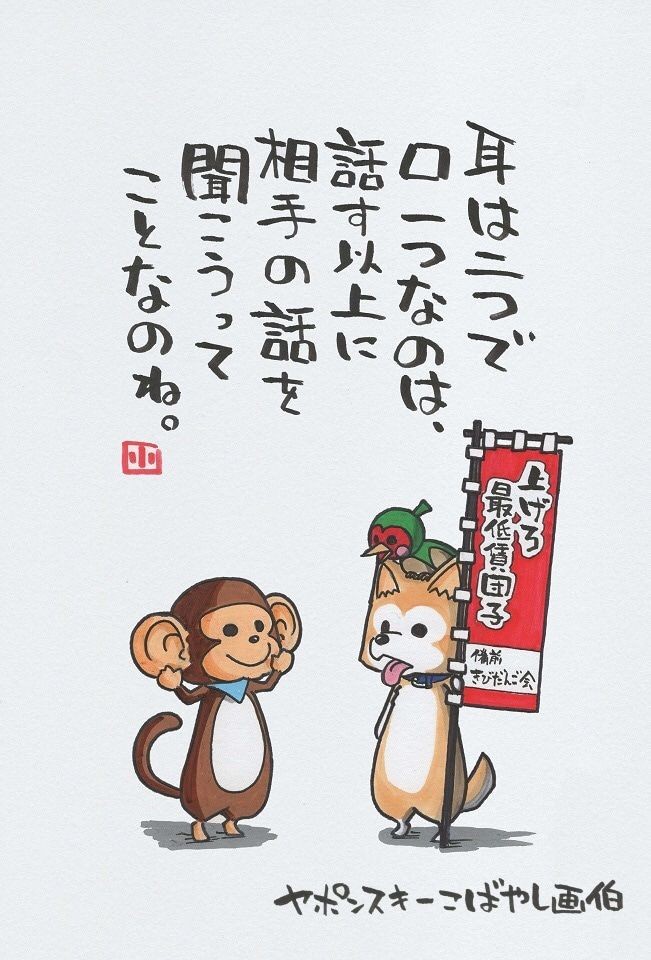 耳は二つで
口一つなのは、
話す以上に
相手の話を
聞こうって
ことなのね。
小
上げろ
最低賃団子
備前
きびだんご会
ヤポンスキーこばやし画伯